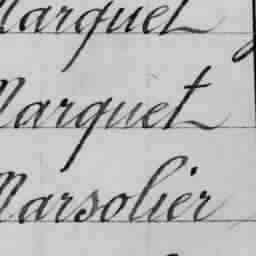 Marquet
Marquet
Marsolier